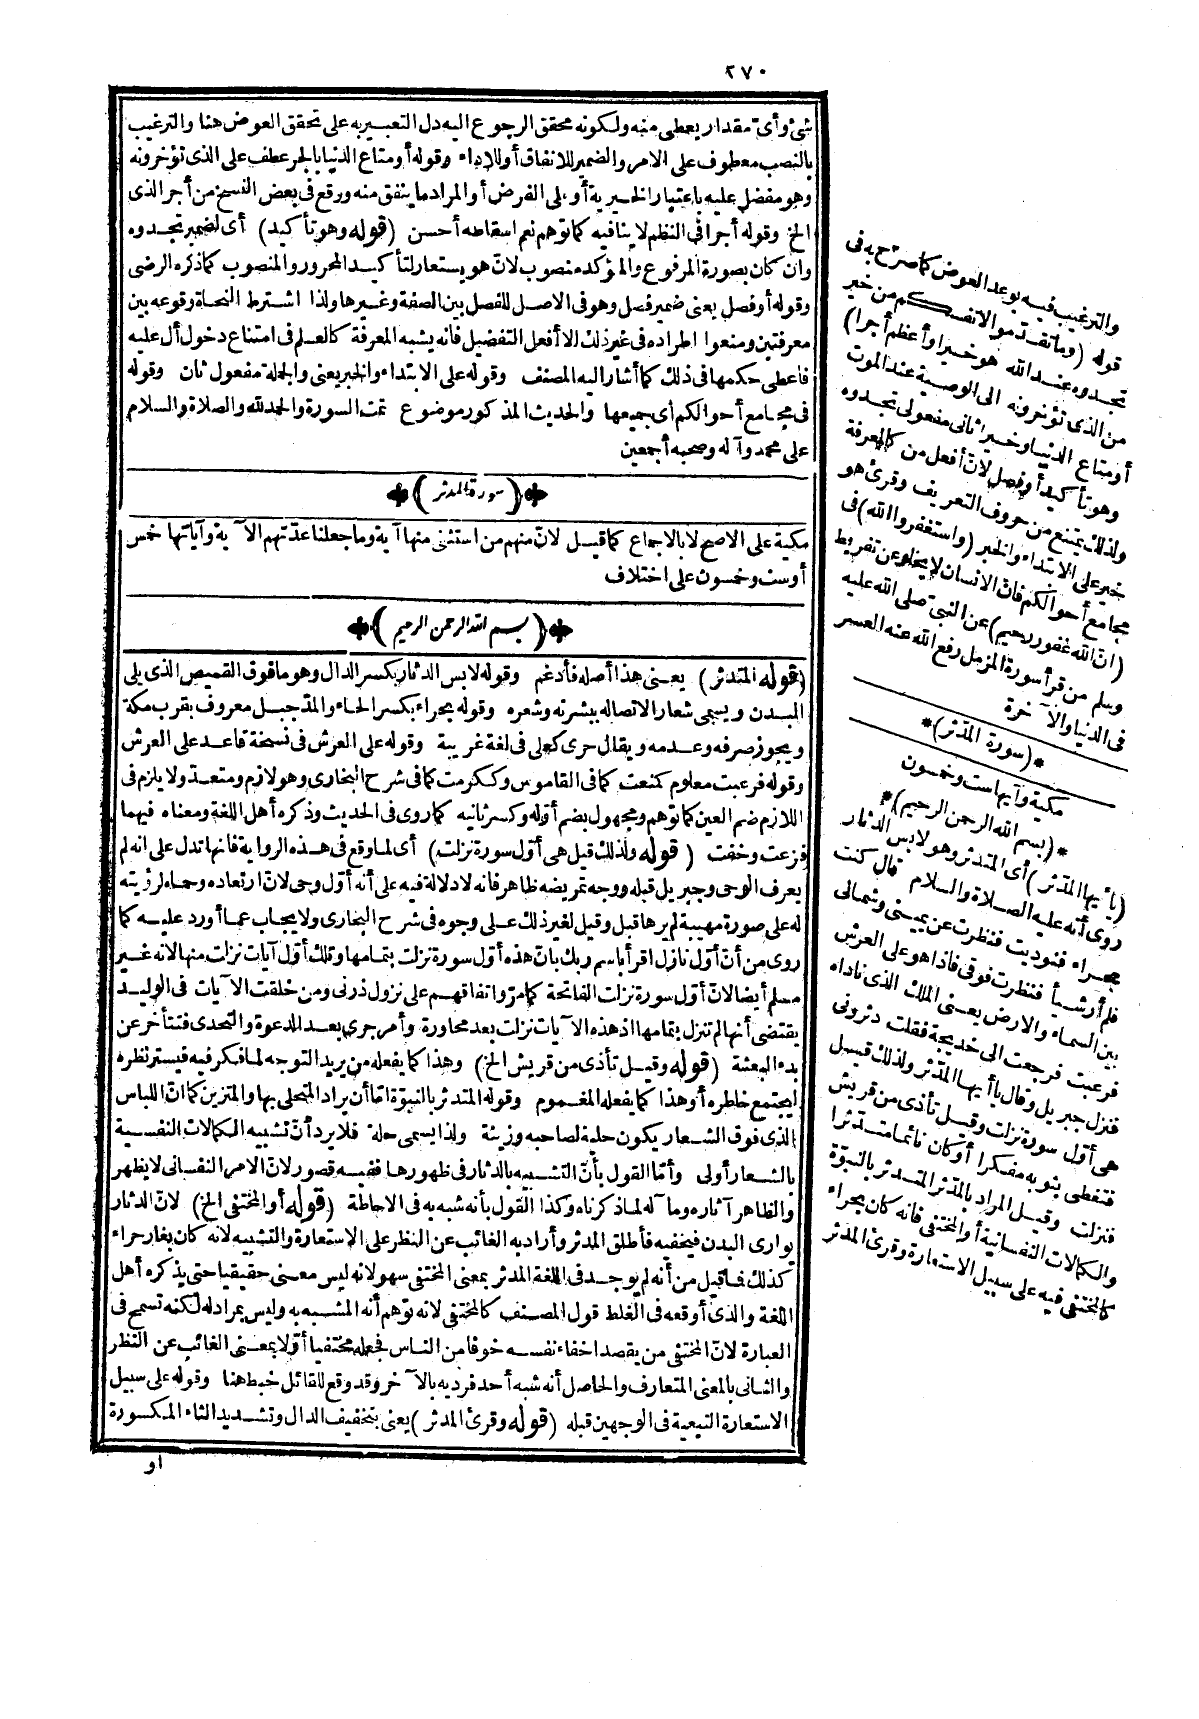 ٢٧٠
شئ وأى مقدار يعطى منه ولكونه محقق الرجوع اليه دل التعبير به على تحقق العوض هنا والترغيب
بالنصب معطوف على الامر والضمير للانفاق أو للاداء وقوله أو متاع الدنيا بالجر عطف على الذى تؤخرونه
وهو مفضل عليه باعتبار الخيرية أو على الفرض أو المراد ما ينفق منه ورقع فى بعض النسخ من أجر الذى
الخ وقوله أجرا فى النظم لا ينافيه كما توهم نعم اسقاطه أحسن (قوله وهو تأكيد) أى لضمير تجدوه
وان كان بصورة المرفوع والمؤكد منصوب لان هو يستعار لتأكيد المجرور والمنصوب كما ذكره الرضى
وقوله أو فصل يعنى ضمير فصل وهو فى الاصل للفصل بين الصفة وغيرها ولذا اشترط النحاة وقوعه بين
معرفتين ومنعوا اطراده فى غير ذلك الا أفعل التفضيل فانه يشبه المعرفة كالعلم فى امتناع دخول أل عليه
فاعطى حكمها فى ذلك كما أشار اليه المصنف وقوله على الابتداء والخبر يعنى والجملة مفعول ثان وقوله
فى مجامع أحوالكم أى جميعها والحديث المذكور موضوع تمت السورة والحمد لله والصلاة والسلام
على محمد وآله وصحبه أجمعين
(سورة المدثر)
مكية على الاصح لا بالاجماع كما قيل لان منهم من استثنى منها آية وما جعلنا عدتهم الآية وآياتها خمس
أو ست وخمسون على اختلاف
(بسم الله الرحمن الرحيم)
(قوله المتدثر) يعنى هذا أصله فأدغم وقوله لابس الدثار بكسر الدال وهو ما فوق القميص الذى يلى
البدن ويسمى شعارا لاتصاله ببشرته وشعره وقوله بحراء بكسر الحاء والمد جبل معروف بقرب مكة
ويجوز صرفه وعدمه ويقال حرى كعلى فى لغة غريبة وقوله على العرش فى نسخة قاعد على العرش
وقوله فرعبت معلوم كمنعت كما فى القاموس وككرمت كما فى شرح البخارى وهو لازم ومتعد ولا يلزم فى
اللازم ضم العين كما توهم ومجهول بضم أوله وكسر ثانيه كما روى فى الحديث وذكره أهل اللغة ومعناه فيهما
فزعت وخفت (قوله ولذلك قيل هى أول سورة نزلت) أى لما وقع فى هذه الرواية فانها تدل على انه لم
يعرف الوحى وجبريل قبله ووجه تمريضه ظاهر فانه لا دلالة فيه على أنه أول وحى لان ارتعاده وحماه لرؤيته
له على صورة مهيبة لم يرها قبل وقيل لغير ذلك على وجوه فى شرح البخارى ولا يجاب عما أورد عليه كما
روى من أن أول نازل اقرأ باسم ربك بان هذه أول سورة نزلت بتمامها وتلك أول آيات نزلت منها لانه غير
مسلم أيضا لان أول سورة نزلت الفاتحة كما مر واتفاقهم على نزول ذرنى ومن خلقت الآيات فى الوليد
يقتضى أنها لم تنزل بتمامها اذ هذه الآيات نزلت بعد محاورة وأمر جرى بعد الدعوة والتحدى فتتأخر عن
بدء البعثة (قوله وقيل تأذى من قريش الخ) وهذا كما يفعله من يريد التوجه لما فكر فيه فيستر نظره
ليجتمع خاطره أو هذا كما يفعله المغموم وقوله المتدثر بالنبوة اما أن يراد المتحلى بها والمتزين كما ان اللباس
الذى فوق الشعار يكون حلية لصاحبه وزينة ولذا يسمى حلة فلا يرد أن تشبيه الكمالات النفسية
بالشعار أولى وأما القول بأن التشبيه بالدثار فى ظهورها ففيه قصور لان الامر النفسانى لا يظهر
والظاهر آثاره ومآله لما ذكرناه وكذا القول بأنه شبه به فى الاحاطة (قوله أو المختفى الخ) لان الدثار
يوارى البدن فيخفيه فأطلق المدثر وأراد به الغائب عن النظر على الاستعارة والتشبيه لانه كان بغار حراء
كذلك فما قيل من أنه لم يوجد فى اللغة المدثر بمعنى المختفى سهو لانه ليس معنى حقيقيا حتى يذكره أهل
اللغة والذى أوقعه فى الغلط قول المصنف كالمختفى لانه توهم أنه المشبه به وليس بمراد له لكنه تسمح فى
العبارة لان المختفى من يقصد اخفاء نفسه خوفا من الناس فجعله مختفيا أولا بمعنى الغائب عن النظر
والثانى بالمعنى المتعارف والحاصل أنه شبه أحد فرديه بالآخر وقد وقع للقائل خبط هنا وقوله على سبيل
الاستعارة التبعية فى الوجهين قبله (قوله وقرئ المدثر) يعنى بتخفيف الدال وتشديد الثاء المكسورة
او
والترغيب فيه بوعد العوض كما صرح به فى
قوله (وما تقدموا لانفسكم من خير
تجدوه عند الله هو خيرا وأعظم أجرا)
من الذى تؤخرونه الى الوصية عند الموت
أو متاع الدنيا وخيرا ثانى مفعولى تجدوه
وهو تأكيد أو فصل لان أفعل من كالمعرفة
ولذلك يمتنع من حروف التعريف وقرئ هو
خير على الابتداء والخبر (واستغفروا الله) فى
مجامع أحوالكم فان الانسان لا يخلو عن تفريط
(ان الله غفور رحيم) عن النبى صلى الله عليه
وسلم من قرأ سورة المزمل رفع الله عنه العسر
فى الدنيا والآخرة
*(سورة المدثر)*
مكية وآيها ست وخمسون
*(بسم الله الرحمن الرحيم)*
(يا أيها المدثر) أى المتدثر وهو لابس الدثار
روى أنه عليه الصلاة والسلام قال كنت
بحراء فنوديت فنظرت عن يمينى وشمالى
فلم أر شيأ فنظرت فوقى فاذا هو على العرش
بين السماء والارض يعنى الملك الذى ناداه
فرعبت فرجعت الى خديجة فقلت دثرونى
فنزل جبريل وقال يا أيها المدثر ولذلك قيل
هى أول سورة نزلت وقيل تأذى من قريش
فتغطى بثوبه مفكرا أو كان نائما متدثرا
فنزلت وقيل المراد بالمدثر المتدثر بالنبوة
والكمالات النفسانية أو المختفى فانه كان بحراء
كالمختفى فيه على سبيل الاستعارة وقرئ المدثر